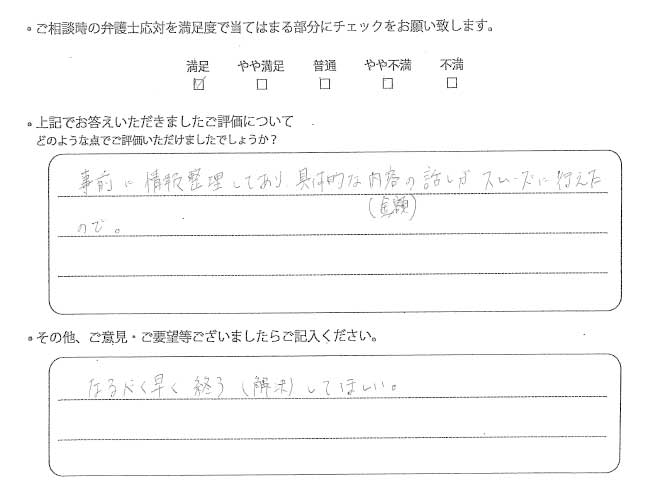 ・ご相談時の弁護士応対を満足度で当てはまる部分にチェックをお願い致します。
満足 やや満足 普通 やや不満 不満
☑ □ □ □ □
・上記でお答えいただきましたご評価について
どのような点でご評価いただけましたでしょうか？
事前に情報整理しており、具体的な内容の話しがスムーズに行えた
（金額）
ので。
・その他、ご意見・ご要望等ございましたらご記入ください。
なるべく早く終う（解決）してほしい。